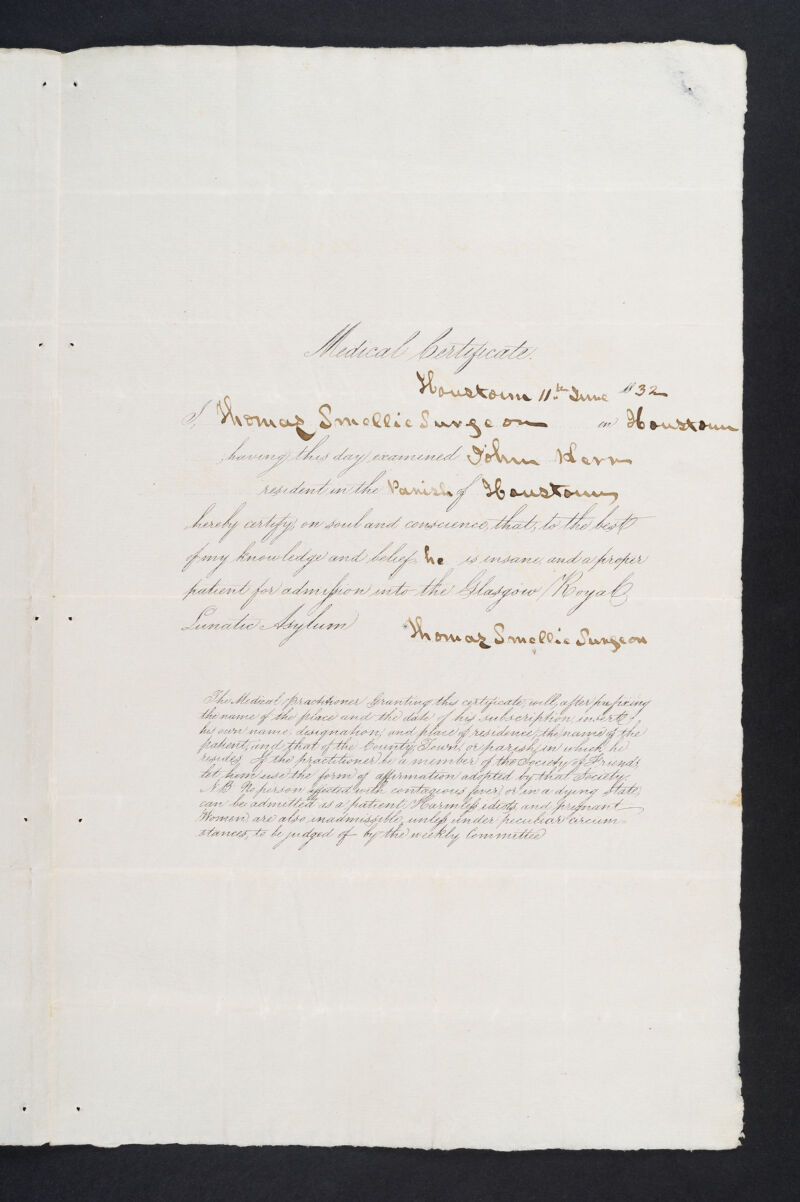 Medical Certificate.
Houstoun 11th June 1832
I, Thomas Smellie Surgeon in Houstoun
having this day examined John Kerr
resident in the Parish of Houstoun
hereby certify, on soul and conscience, that, to the best
of my knowledge and belief he is insane, and a proper
patient for admission into the Glasgow Royal
Lunatic Asylum
Thomas Smellie Surgeon
The Medical practitioner Granting this certificate, will, after prefixing
the name of the place and the date of his subscription, insert
his own name, designation, and place of residence, the name of the
patient, and that of the County, Town, or parish, in which he
resides. If the practitioner be a member of the Society of Friends
let him use the form of affirmation adopted by that Society.
N.B. No person affected with contagious fever, or in a dying state,
can be admitted as a patient. Harmless idiots and pregnant
Women are also inadmissible, unless under peculiar circum-
stances, to be judged of by the weekly Committee